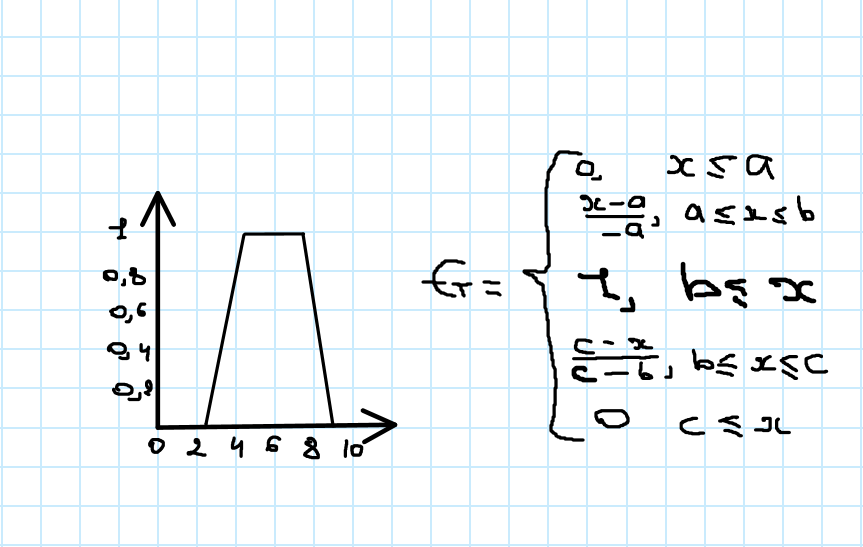 1
0,8
0,6
0,4
0,2
0 2 4 6 8 10
€T =
0, x ≤ a
x-a/-a, a ≤ x ≤ b
1, b ≤ x
c-x/c-b, b ≤ x ≤ c
0 c ≤ x